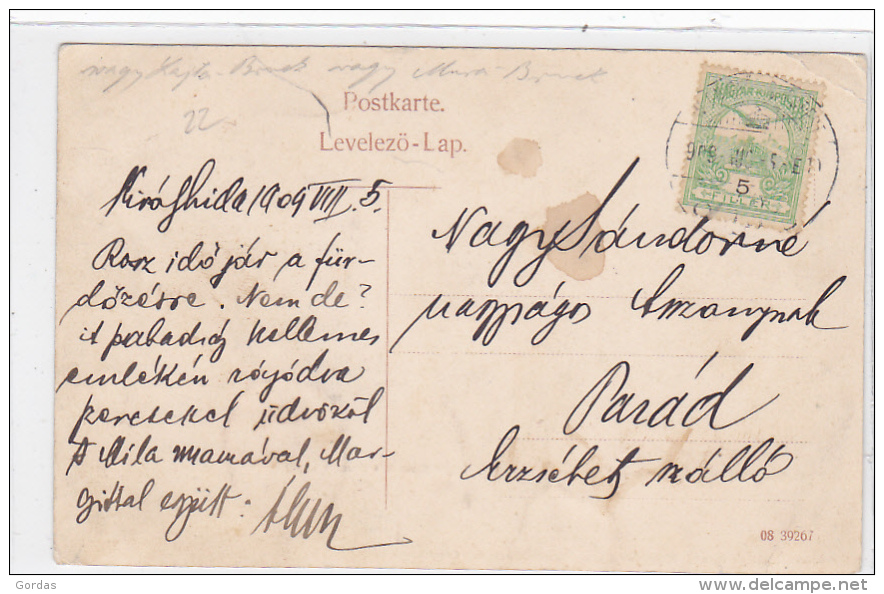 nagy Kajla-Bruck nagy Mura-Bruck
22.
Postkarte.
Levelező-Lap.
MAGYAR KIR. POSTA
909
5
FILLÉR
Királyhida 1909 VIII. 5.
Rosz idő jár a für-
dőzésre. Nem de?
A szabadság kellemes
emlékén rágódva
kereseket üdvözöl
Mila mamával, Mar-
gittal együtt:
Nagy Sándorné
nagyságos Asszonynak
Parád
Erzsébet szálló
08 39267
Gordas
delcampe.net